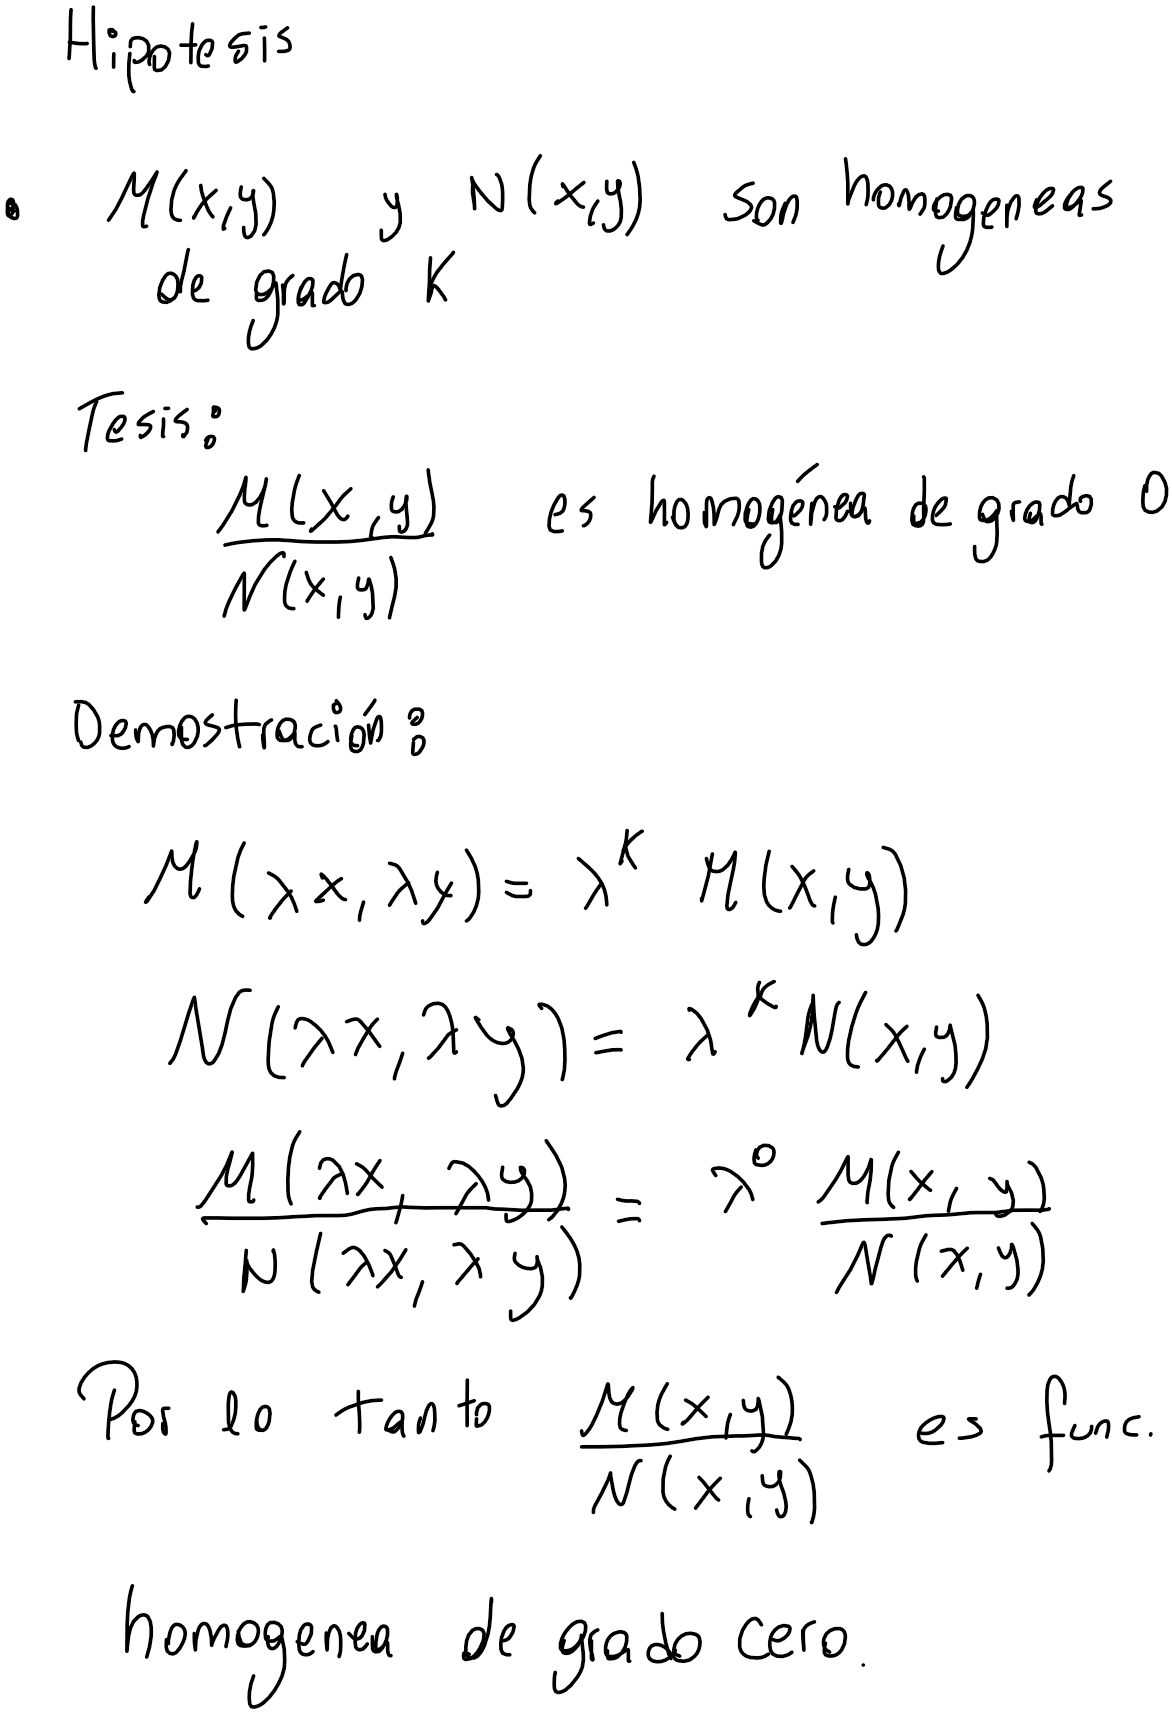 Hipotesis
• M(x,y) y N(x,y) son homogeneas
de grado K
Tesis:
M(x,y)/N(x,y) es homogénea de grado 0
Demostración:
M(λx, λy) = λ^K M(x,y)
N(λx, λy) = λ^K N(x,y)
M(λx, λy)/N(λx, λy) = λ^0 M(x,y)/N(x,y)
Por lo tanto M(x,y)/N(x,y) es func.
homogenea de grado cero.